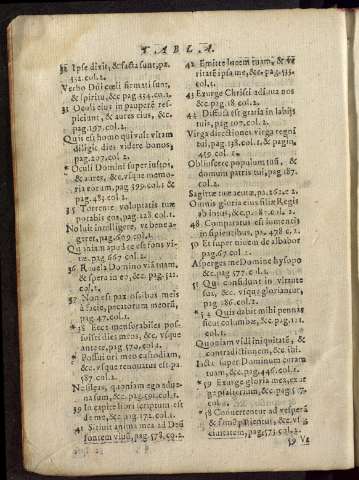 TABLA.
32 Ipse dixit, & facta sunt, pa.
332. col. 2.
Verbo Dñi cœli firmati sunt,
& spiritu, &c. pag. 334. col. 1.
33 Oculi eius in pauperẽ res-
piciunt, & aures eius, &c.
pag. 197. col. 2.
Quis est homo qui vult vitam
diligit dies videre bonos,
pag. 207. col. 2.
Oculi Domini super iustos,
& aures, &c. vsque memo-
ria eorum, pag. 399. col. 1. &
pag. 348. col. 2.
35 Torrente voluptatis tuæ
potabis eos, pag. 228. col. 1.
Noluit intelligere, vt bene a-
geret, pag. 609. col. 1.
Quoniam apud te est fons vi-
tæ. pag. 632. col. 2.
36 Reuela Domino viã tuam,
& spera in eo, &c. pag. 512.
col. 1.
37 Non est pax ossibus meis
à facie peccatorum meorũ,
pag. 47. col. 1.
38 Ecce mensorabiles pos-
suisti dies meos, &c. vsque
ante te, pag. 570. col. 2.
Possui ori meo custodiam,
&c. vsque renouatus est pa.
187. col. 2.
Ne sileas, quoniam ego aduẽ-
na sum, &c. pag. 571. col. 1.
39 In capite libri scriptum est
de me, &c. pag. 172. col. 1.
41 Sitiuit anima mea ad Deũ
fontem viuũ, pag. 378. co. 2.
42 Emitte lucem tuam, & ve
ritatẽ ipsa me, &c. pag. 533.
col. 1.
43 Exurge Christi adiuua nos
&c. pag. 18. col. 2.
44 Diffusa est gratia in labijs
tuis, pag. 107. col. 2.
Virga directionis virga regni
tui, pag. 138. col. 1. & pagin.
col. 2.
Obliuiscere populum tuũ, &
domum patris tui, pag. 187.
col. 2.
Sagittæ tuæ acutæ, pa. 262. c. 2.
Omnis gloria eius filiæ Regis
ab intus, &c. p. col. 2.
48 Comparatus est iumentis
insipientibus, pa. 478. c. 1.
50 Et super niuem dealbabor
pag. 67. col. 1.
Asperges me Domine hysopo
&c. pag. 577. c. 1.
51 Qui confidunt in virtute
sua, &c. vsque gloriantur,
pag. 186. col. 2.
54 Quis dabit mihi pennas
sicut columbæ, &c. pag. 12.
col. 1.
Quoniam vidi iniquitatẽ, &
contradictionem, &c.
Iacta super Dominum curam
tuam, &c. pag. 446. col. 1.
Exurge gloria mea, exur-
ge psalterium, &c. pag. 317.
col. 1.
58 Conuertentur ad vesperã
& famẽ patientur, &c.
ciuitatem, pag. 573. col. 2.